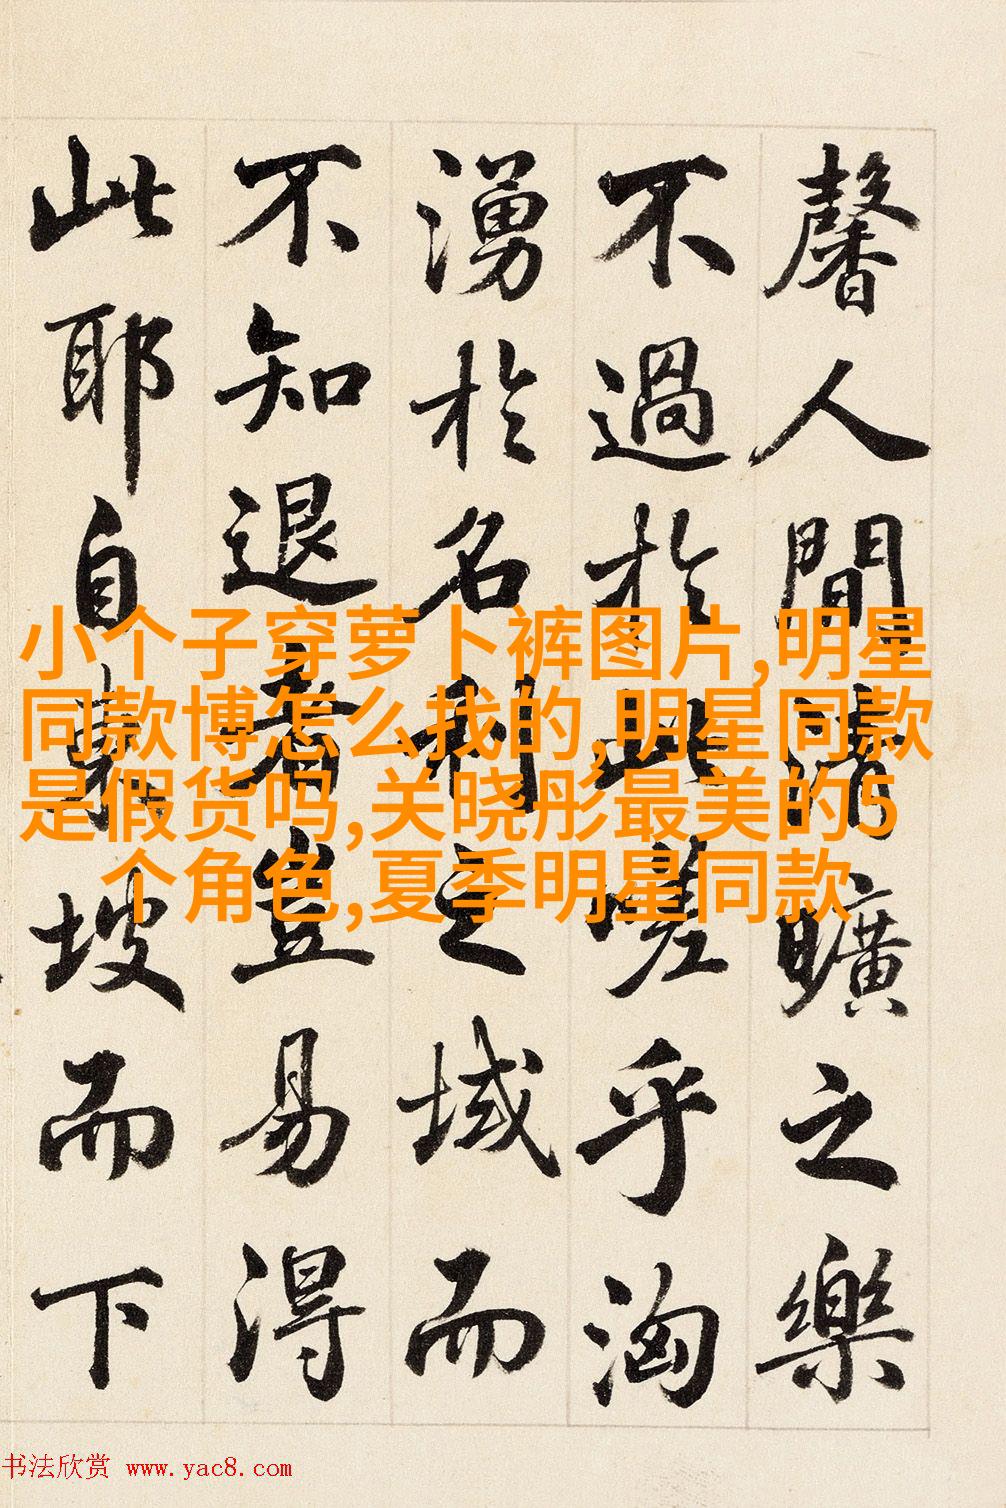 馨人間清曠之樂
不過於此嗟乎洶
湧於名利之域而
不知退者豈易得
此耶自東坡而下
小个子穿萝卜裤图片,明星
同款博怎么找的,明星同款
是假货吗,关晓彤最美的5
个角色,夏季明星同款
书法欣赏 www.yac8.com